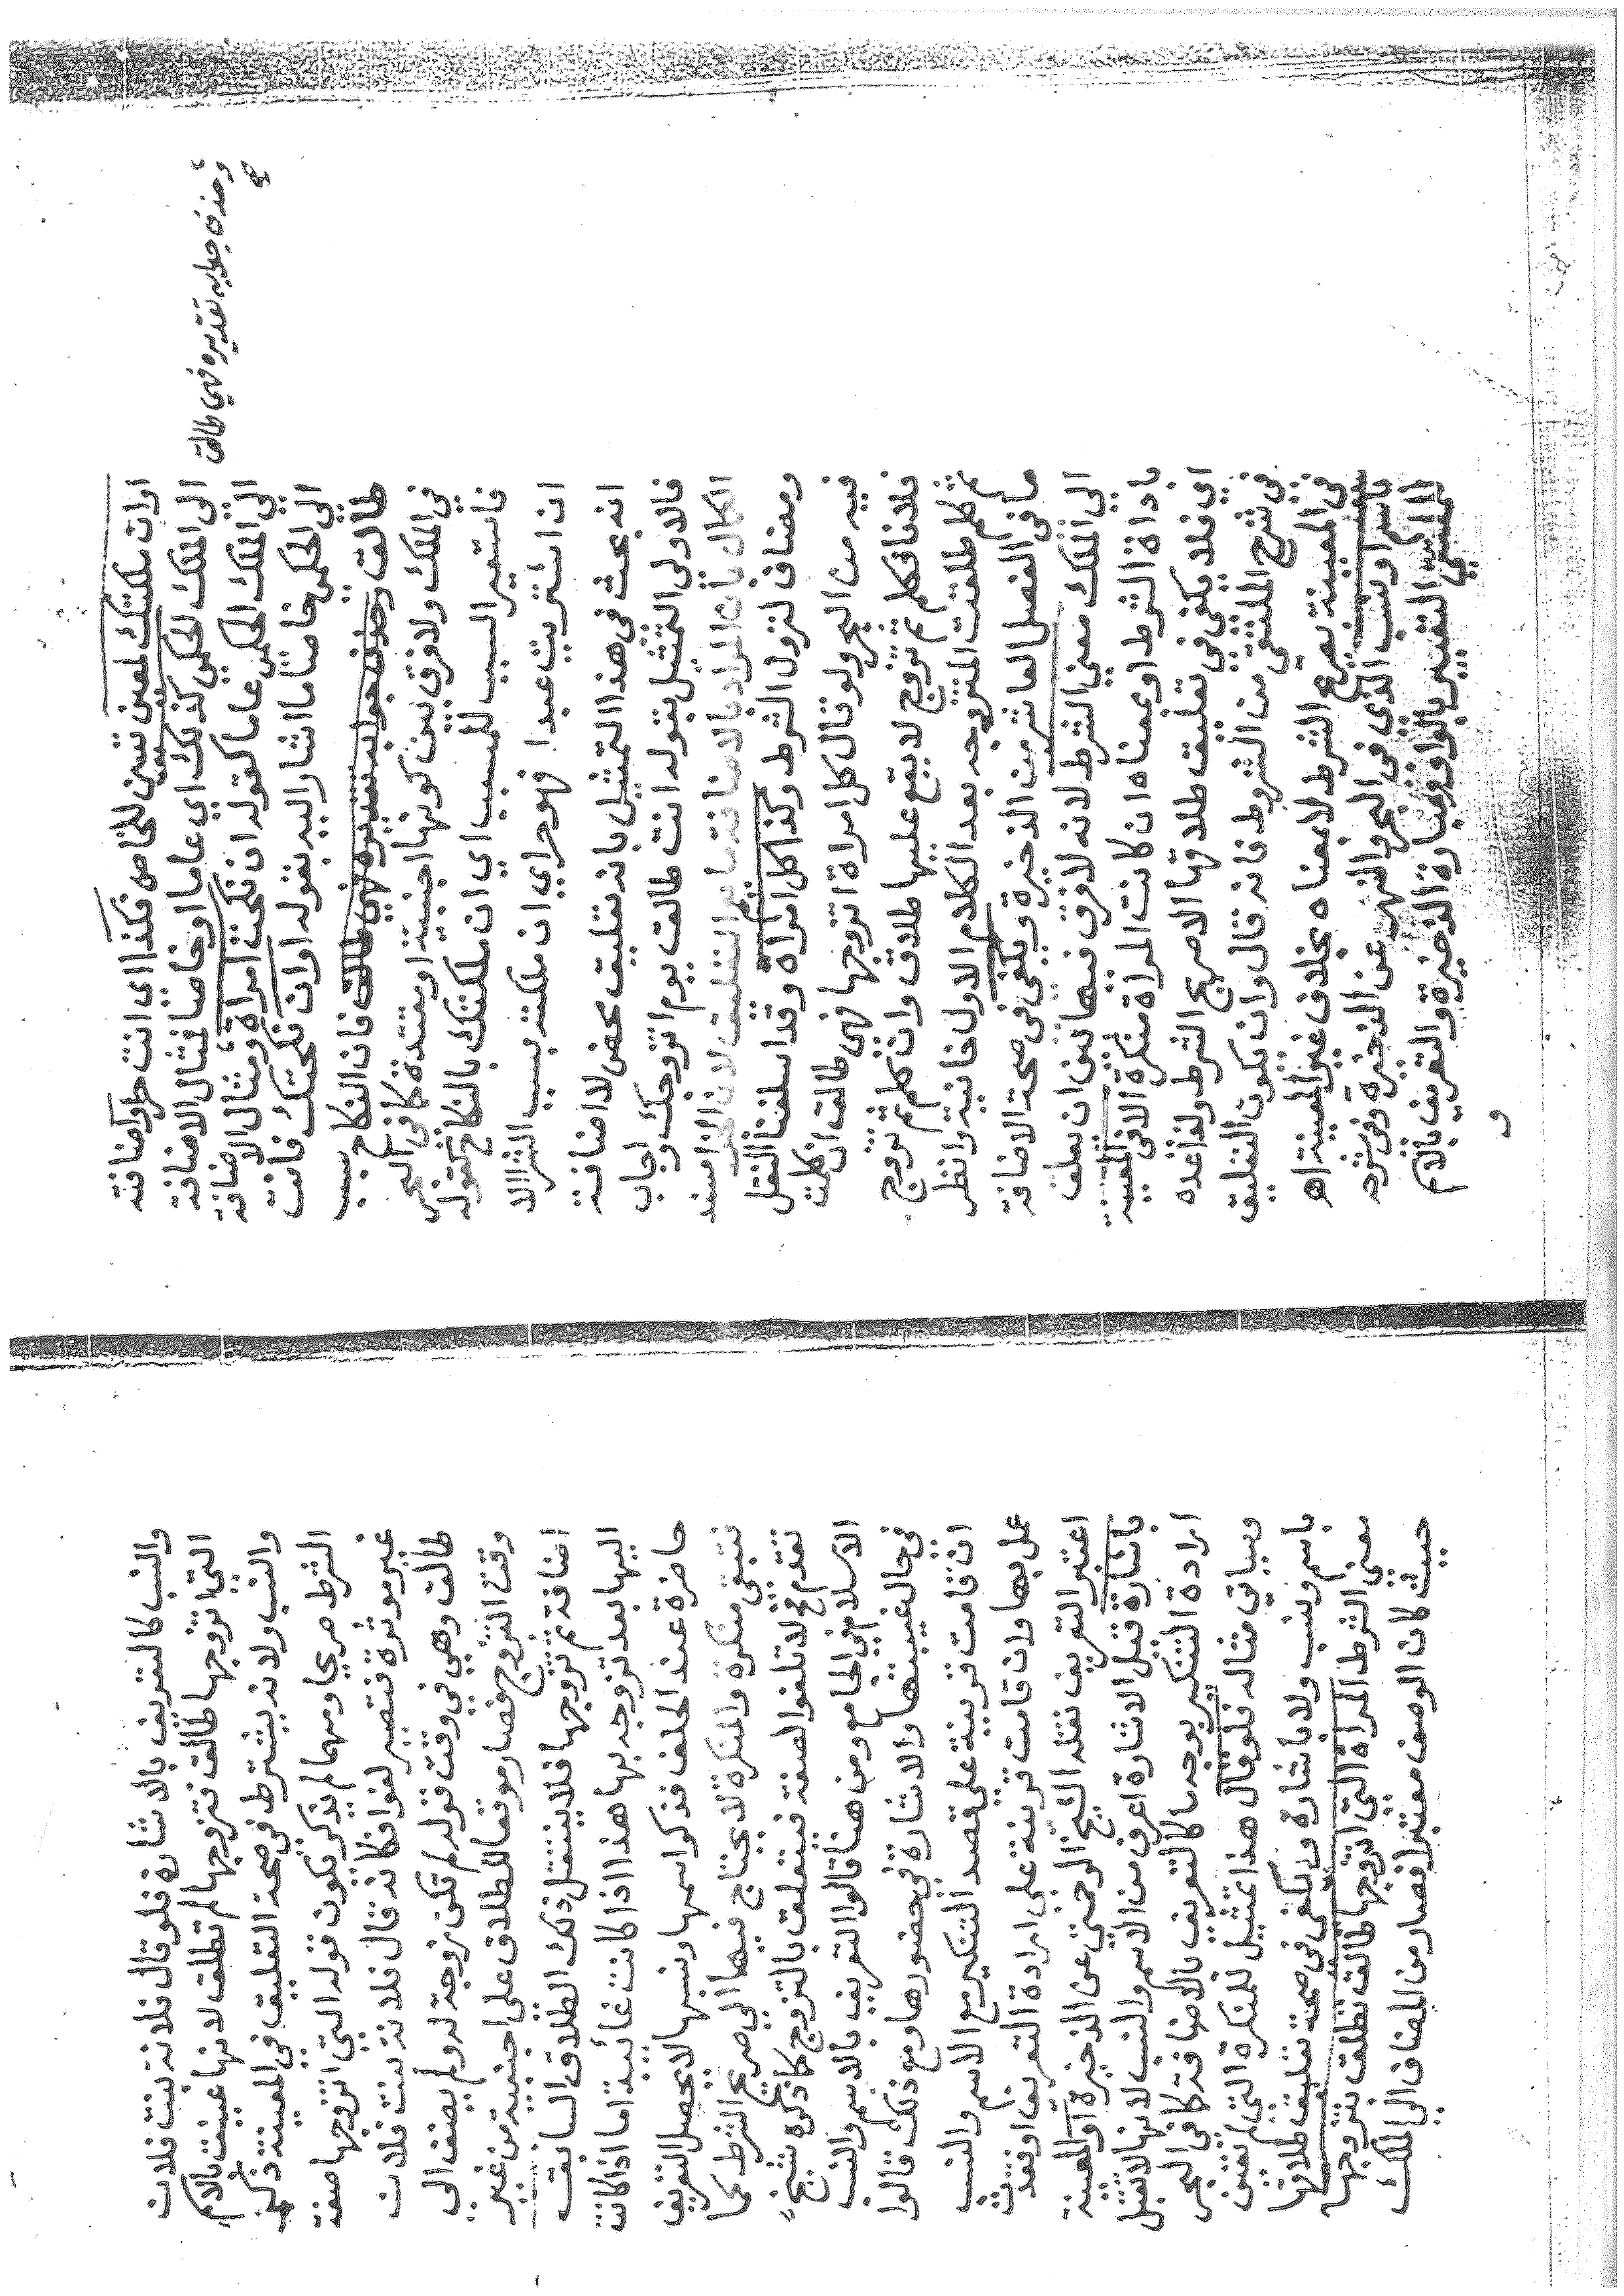 اوان ملكتك لمعين تبين للخاص فكذا اى انت حر واضافة
الى الملك الحكمي كذلك اي عاما او خاصا فمثال الاضافة
الى الملك الحكمي عاما كقوله ان نكحت امراة ومثال الاضافة
الى الحكمى خاصا ما اشار اليه بقوله اوان نكحتك فانت
طالق وحذف جوابه تقديره فهي طالق فان النكاح سبب
في الملك ولا فرق بين كونها اجنبية او معتدة كما في البحر
فاستعير السبب للمسبب اي ان ملكتك بالنكاح كقوله
ان اشتريت عبدا فهو حر اي ان ملكته بسبب الشرا الا
انه بحث في هذا التمثيل بانه تعليق محض لا اضافة
فالاولى التمثيل بقوله انت طالق يوم اتزوجك واجاب
الكمال بان المراد بالاضافة ما يعم التعليق لان الجزا مسند
ومضاف لنزول الشرط وكذا كل امراة وقد اسلفنا النقل
فيه من البحر ولو قال كل امراة اتزوجها فهي طالق ان كلمت
فلانا فكلم ثم تزوج لا يقع عليها طلاق وان كلم ثم تزوج
ثم كلم طلقت المتزوجة بعد الكلام الاول خانية وانظر
ما في الفصل العاشر من الذخيرة ويكفى في صحة الاضافة
الى الملك معنى الشرط لانه لا فرق فيها بين ان يعلق
باداة الشرط او بمعناه ان كانت المراة منكرة الا في المعينة
اي فلا يكفي في تعليق طلاقها الا صريح الشرط ولقاعده
في شرح الملتقى من الشروط فانه قال وان يكون التعليق
في المعينة بصريح الشرط لا بمعناه بخلاف غير المعينة اهـ
باسم او نسب الذى في البحر والنهر عن الذخيرة وفي شرح
الملتقى التعبير بالواو وعبارة الذخيرة والتعريف بالاسم
و
وحذف جوابه تقديره فهي طالق
صح
والنسب كالتعريف بالاشارة فلو قال فلانة بنت فلان
التي اتزوجها طالق فتزوجها لم تطلق لانها عينت بالاسم
والنسب ولانه يشترط في صحة التعليق في المعينة ذكر
الشرط صريحا ومهما لم يذكر يكون قوله التي اتزوجها صفة
غير موثرة فتصير لغوا فكانه قال فلانة بنت فلان
طالق وهي في وقت قوله لم تكن زوجة له ولم يضف الى
وقت التزوج فصار موقعا للطلاق على اجنبية من غير
اضافة ثم تزوجها فلا ينتقل ذلك الطلاق السابق
اليها بعد تزوجه بها هذا اذا كانت غائبة اما اذا كانت
حاضرة عند الحلف فذكر اسمها ونسبها لا يحصل التعريف
فتبقى منكرة والمنكرة لا يحتاج فيها الى صريح الشرط كما
تقدم فلا تلغو الصفة فيتعلق بالتزوج كما ذكره شيخ
الاسلام في الجامع ومن هنا قالوا التعريف بالاسم والنسب
في حال غيبتها والاشارة في حضورها ومع ذلك قالوا
ان قامت قرينة على قصد التنكير مع الاسم والنسب
عمل بها وان قامت قرينة على ارادة التعريف او فقدت
اعتبر التعريف نقله الشيخ الرحمتي عن الذخيرة او المعينة
باشارة قبل الاشارة اعرف من الاسم والنسب لانها لا تقبل
ارادة التنكير بوجه ما كالتعريف بالاضافة كما في البحر
وسياتي مثاله فلو قال هذا تمثيل للمنكرة التي لم تعين
باسم ونسب ولا باشارة ويكفى في صحة تعليق طلاقها
معنى الشرط المراة التي اتزوجها طالق تطلق بتزوجها
حيث كان الوصف معتبرا فصار من المضاف الى الملك